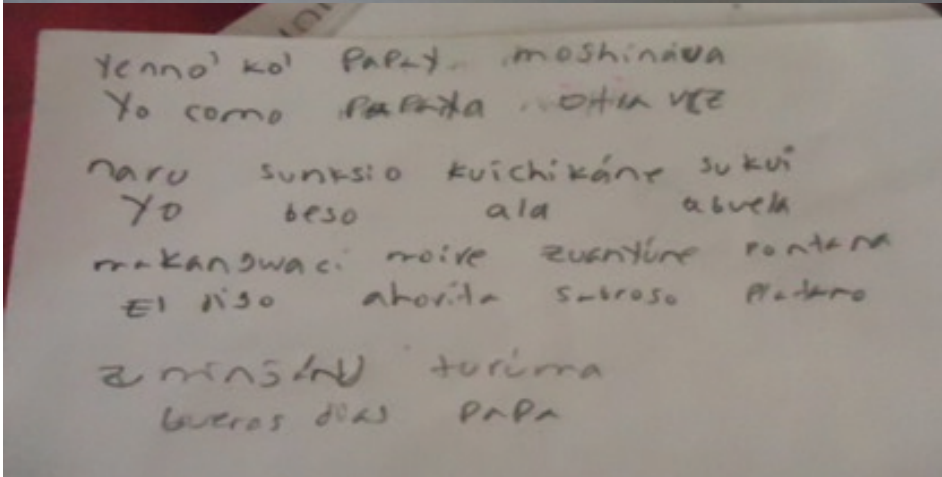 Yenno' ko' papay moshinava
Yo como papaya otra vez
naru sunksio kuichikáne sukui
Yo beso ala abuela
makangwaci moire zuanyúne pontana
El diso ahorita sabroso platano
zminsínu turúma
bueros dias papa